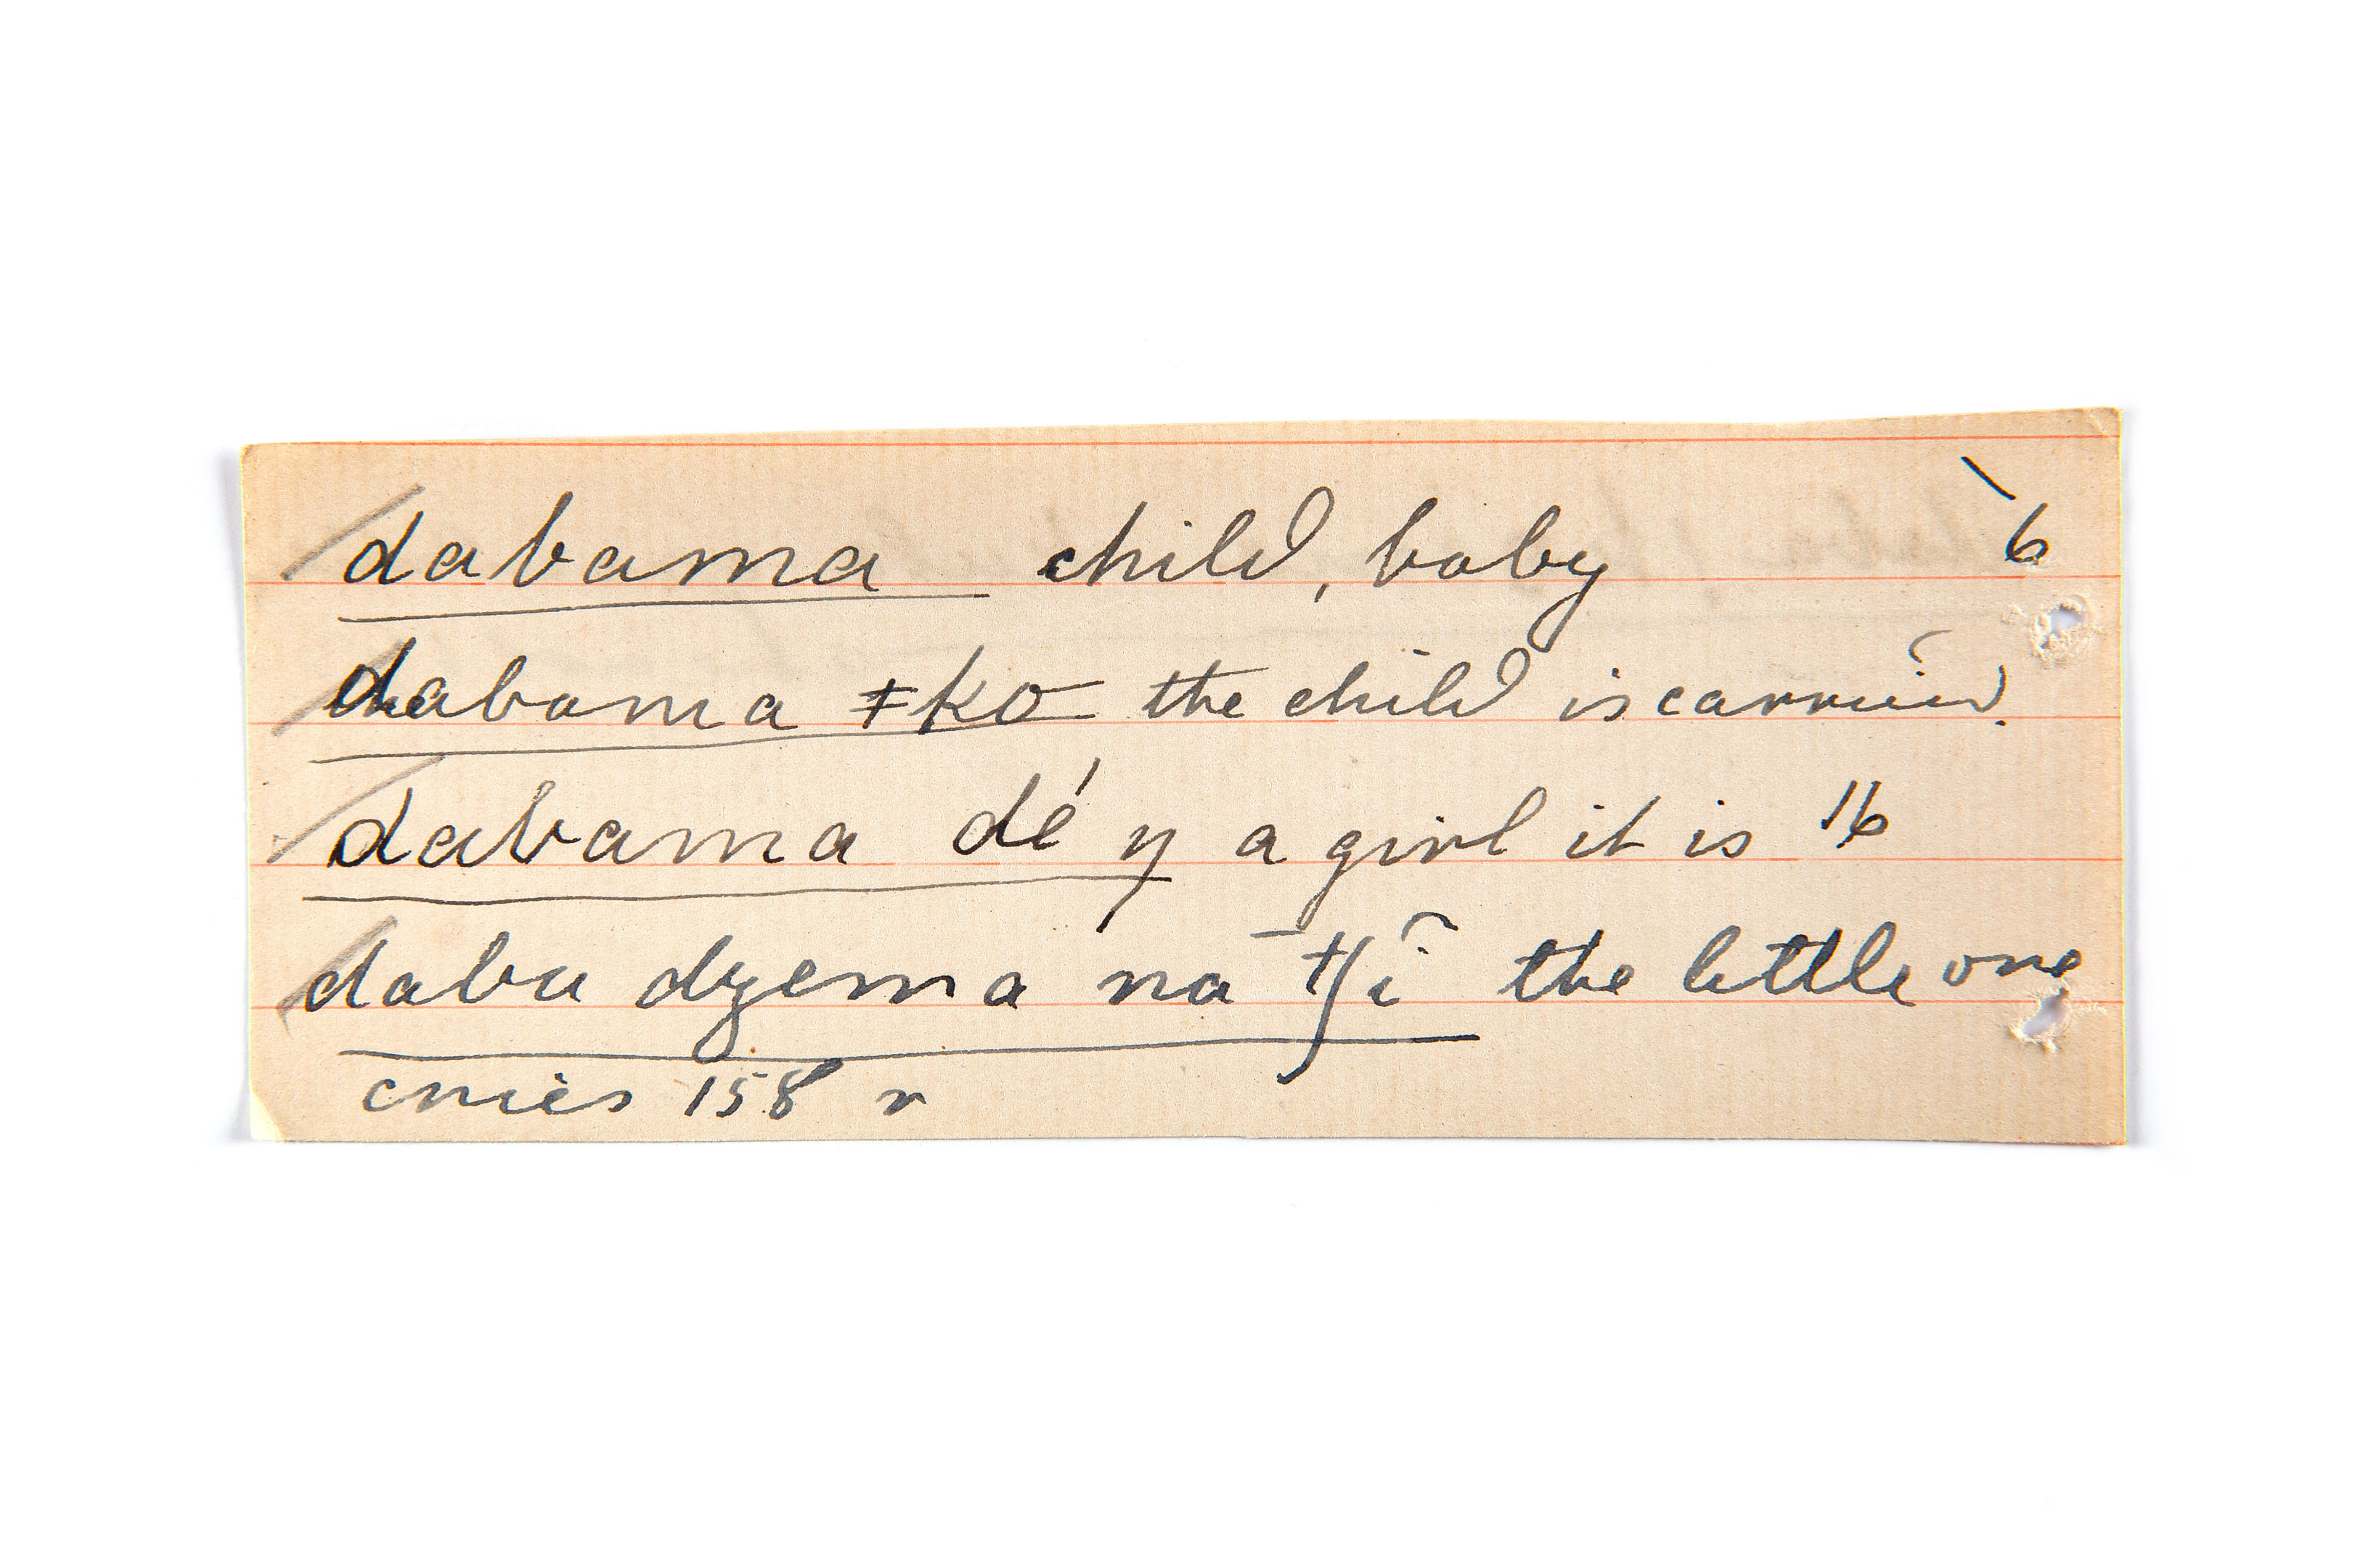 dabama child, baby 6
dabama ǂkō the child is carried.
dabama dé ŋ a girl it is 16
daba dzema na ʧĩ the little one
cries 158 r